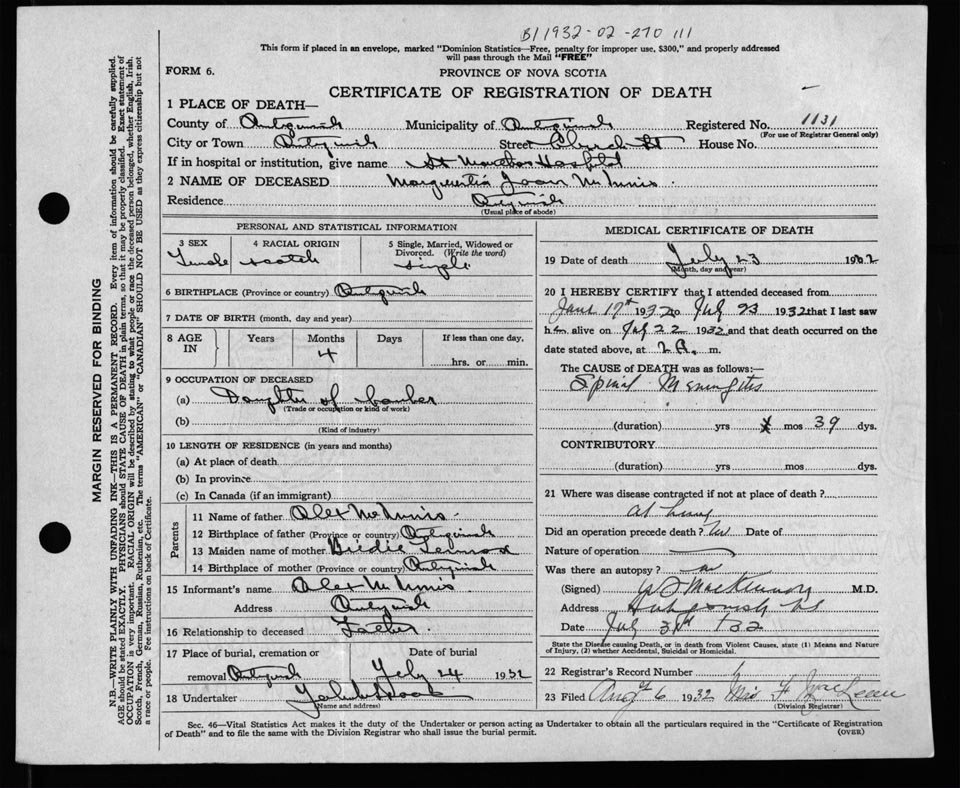 B/1932-02-270 111
This form if placed in an envelope, marked "Dominion Statistics—Free, penalty for improper use, $300," and properly addressed
will pass through the Mail "FREE"
FORM 6.
PROVINCE OF NOVA SCOTIA
CERTIFICATE OF REGISTRATION OF DEATH
1 PLACE OF DEATH—
County of Antigonish Municipality of Antigonish Registered No. 1131
(For use of Registrar General only)
City or Town Antigonish Street Church St House No.
If in hospital or institution, give name St Marthas Hospital
2 NAME OF DECEASED Joan McInnis
Residence Antigonish
(Usual place of abode)
PERSONAL AND STATISTICAL INFORMATION
3 SEX 4 RACIAL ORIGIN 5 Single, Married, Widowed or
Divorced. (Write the word)
Female Scotch single
6 BIRTHPLACE (Province or country) Antigonish
7 DATE OF BIRTH (month, day and year)
8 AGE IN Years Months Days If less than one day,
4 hrs. or min.
9 OCCUPATION OF DECEASED
(a) Daughter of
(Trade or occupation or kind of work)
(b)
(Kind of industry)
10 LENGTH OF RESIDENCE (in years and months)
(a) At place of death
(b) In province
(c) In Canada (if an immigrant)
Parents
11 Name of father Alex McInnis
12 Birthplace of father (Province or country) Antigonish
13 Maiden name of mother Birdie
14 Birthplace of mother (Province or country) Antigonish
15 Informant's name Alex McInnis
Address Antigonish
16 Relationship to deceased Father
17 Place of burial, cremation or Date of burial
removal Antigonish July 24 1932
18 Undertaker
(Name and address)
MEDICAL CERTIFICATE OF DEATH
19 Date of death July 23 1932
(Month, day and year)
20 I HEREBY CERTIFY that I attended deceased from
June 19th 1932 to July 23 1932 that I last saw
her alive on July 22 1932 and that death occurred on the
date stated above, at 2 A. m.
The CAUSE of DEATH was as follows:—
Spinal Meningitis
(duration) yrs mos 39 dys.
CONTRIBUTORY
(duration) yrs mos dys.
21 Where was disease contracted if not at place of death?
at home
Did an operation precede death? no Date of
Nature of operation
Was there an autopsy? no
(Signed) M.D.
Address Antigonish NS
Date July 31st 1932
State the Disease causing Death, or in death from Violent Causes, state (1) Means and Nature
of Injury, (2) whether Accidental, Suicidal or Homicidal.
22 Registrar's Record Number
23 Filed Aug 6 1932 Mis F MacLean
(Division Registrar)
Sec. 46—Vital Statistics Act makes it the duty of the Undertaker or person acting as Undertaker to obtain all the particulars required in the "Certificate of Registration
of Death" and to file the same with the Division Registrar who shall issue the burial permit.
(OVER)
MARGIN RESERVED FOR BINDING
N.B.—WRITE PLAINLY WITH UNFADING INK—THIS IS A PERMANENT RECORD. Every item of information should be carefully supplied.
AGE should be stated EXACTLY. PHYSICIANS should STATE CAUSE OF DEATH in plain terms, so that it may be properly classified. Exact statement of
OCCUPATION is very important. RACIAL ORIGIN will be described by stating to what people or race the deceased person belonged, whether English, Irish,
Scotch, French, German, Russian, Ruthenian, etc. The terms "AMERICAN" or "CANADIAN" SHOULD NOT BE USED as they express citizenship but not
a race or people. Fee instructions on back of Certificate.